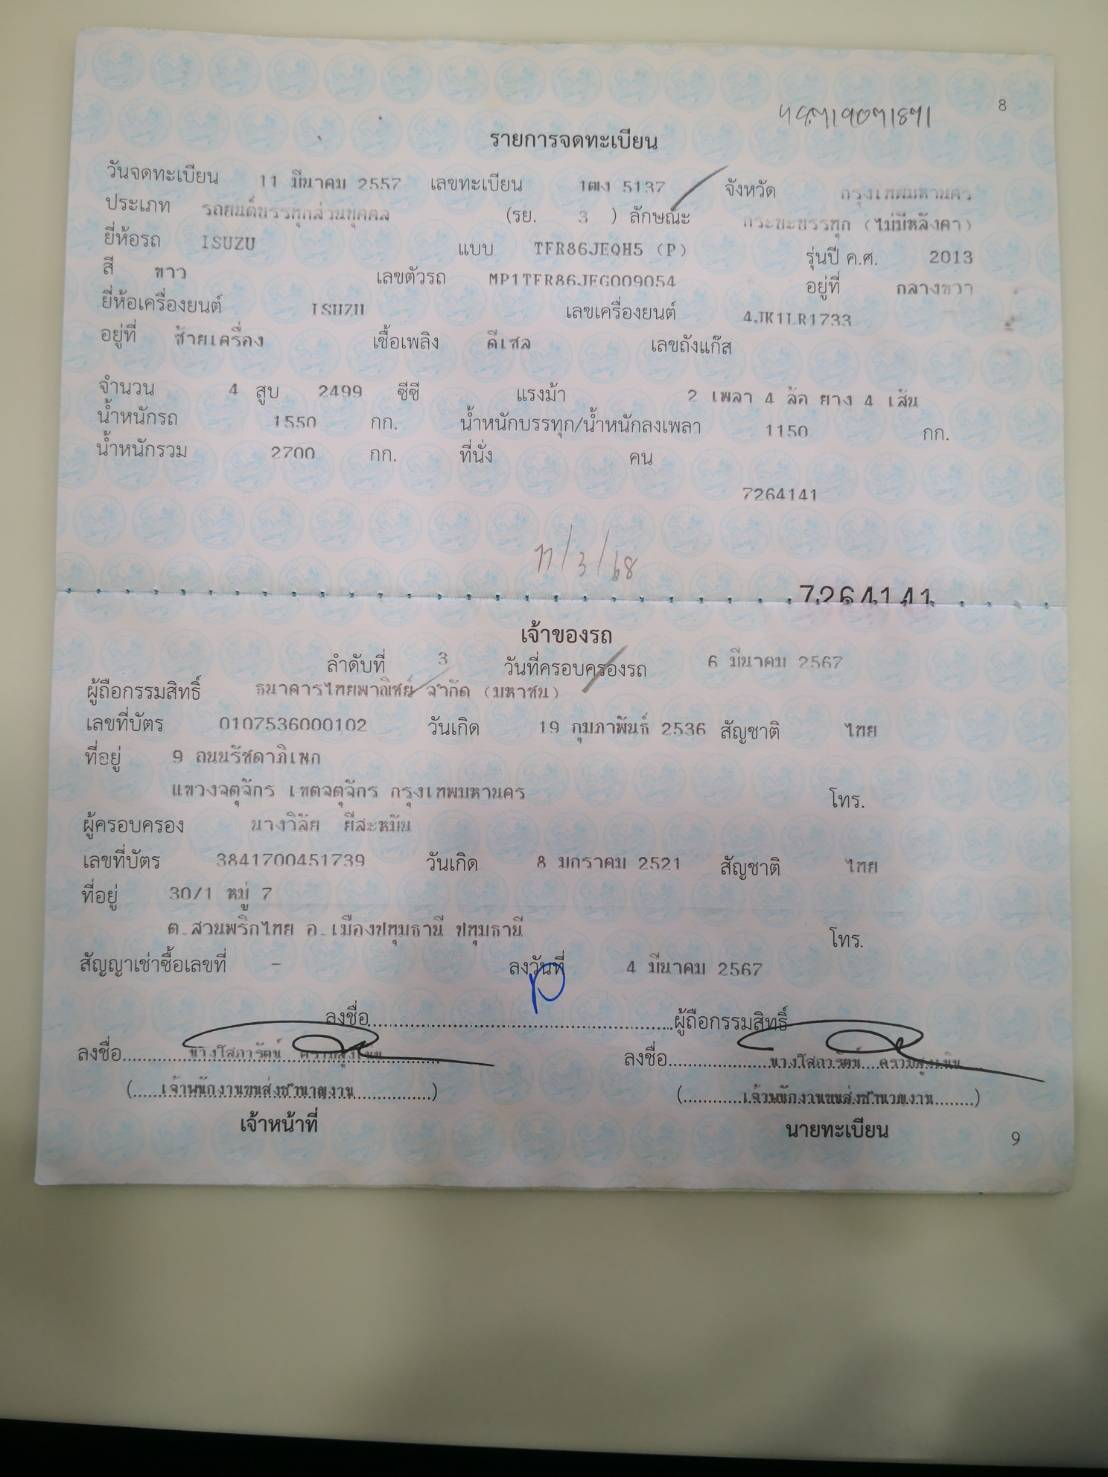 8
รายการจดทะเบียน
วันจดทะเบียน 11 มีนาคม 2557 เลขทะเบียน 1ฒง 5137 จังหวัด กรุงเทพมหานคร
ประเภท รถยนต์บรรทุกส่วนบุคคล (รย. 3 ) ลักษณะ กระบะบรรทุก (ไม่มีหลังคา)
ยี่ห้อรถ ISUZU แบบ TFR86JEQH5 (P) รุ่นปี ค.ศ. 2013
สี ขาว เลขตัวรถ MP1TFR86JEG009054 อยู่ที่ กลางขวา
ยี่ห้อเครื่องยนต์ ISUZU เลขเครื่องยนต์ 4JK1LR1733
อยู่ที่ ซ้ายเครื่อง เชื้อเพลิง ดีเซล เลขถังแก๊ส
จำนวน 4 สูบ 2499 ซีซี แรงม้า 2 เพลา 4 ล้อ ยาง 4 เส้น
น้ำหนักรถ 1550 กก. น้ำหนักบรรทุก/น้ำหนักลงเพลา 1150 กก.
น้ำหนักรวม 2700 กก. ที่นั่ง คน
7264141
11/3/68
7264141
เจ้าของรถ
ลำดับที่ 3 วันที่ครอบครองรถ 6 มีนาคม 2567
ผู้ถือกรรมสิทธิ์ ธนาคารไทยพาณิชย์ จำกัด (มหาชน)
เลขที่บัตร 0107536000102 วันเกิด 19 กุมภาพันธ์ 2536 สัญชาติ ไทย
ที่อยู่ 9 ถนนรัชดาภิเษก
แขวงจตุจักร เขตจตุจักร กรุงเทพมหานคร โทร.
ผู้ครอบครอง นางวิลัย ยีสะหมัน
เลขที่บัตร 3841700451739 วันเกิด 8 มกราคม 2521 สัญชาติ ไทย
ที่อยู่ 30/1 หมู่ 7
ต.สวนพริกไทย อ.เมืองปทุมธานี ปทุมธานี โทร.
สัญญาเช่าซื้อเลขที่ - ลงวันที่ 4 มีนาคม 2567
ลงชื่อ ผู้ถือกรรมสิทธิ์
ลงชื่อ นางโสภารัตน์ ลงชื่อ นางโสภารัตน์
(เจ้าพนักงานขนส่งชำนาญงาน) (เจ้าพนักงานขนส่งชำนาญงาน)
เจ้าหน้าที่ นายทะเบียน
9